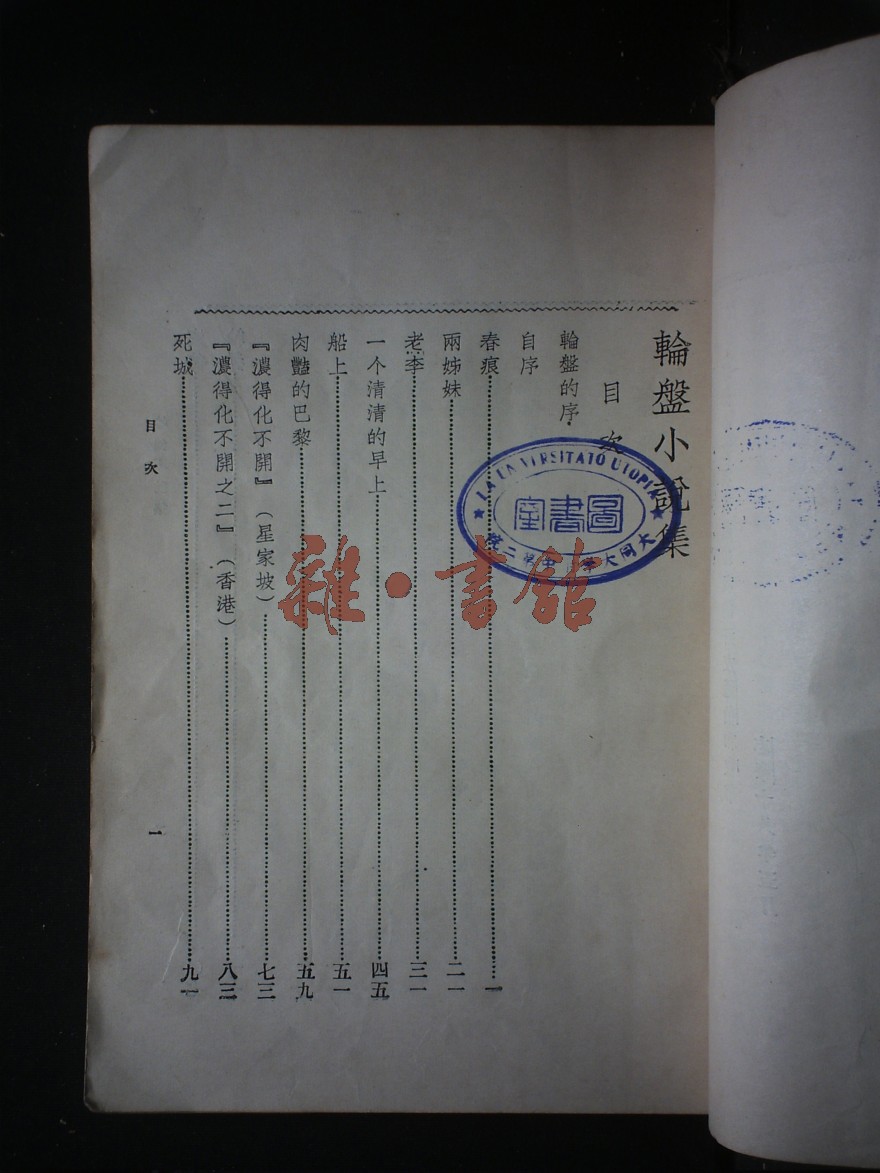 輪盤小說集
目次
輪盤的序
自序
春痕……一
兩姊妹……二一
老李……三一
一个清清的早上……四五
船上……五一
肉豔的巴黎……五九
『濃得化不開』（星家坡）……七三
『濃得化不開之二』（香港）……八三
死城……九一
目次
一
LA UNIVERSITATO UTOPIA
圖書室
大同大學
二院
雜·書館